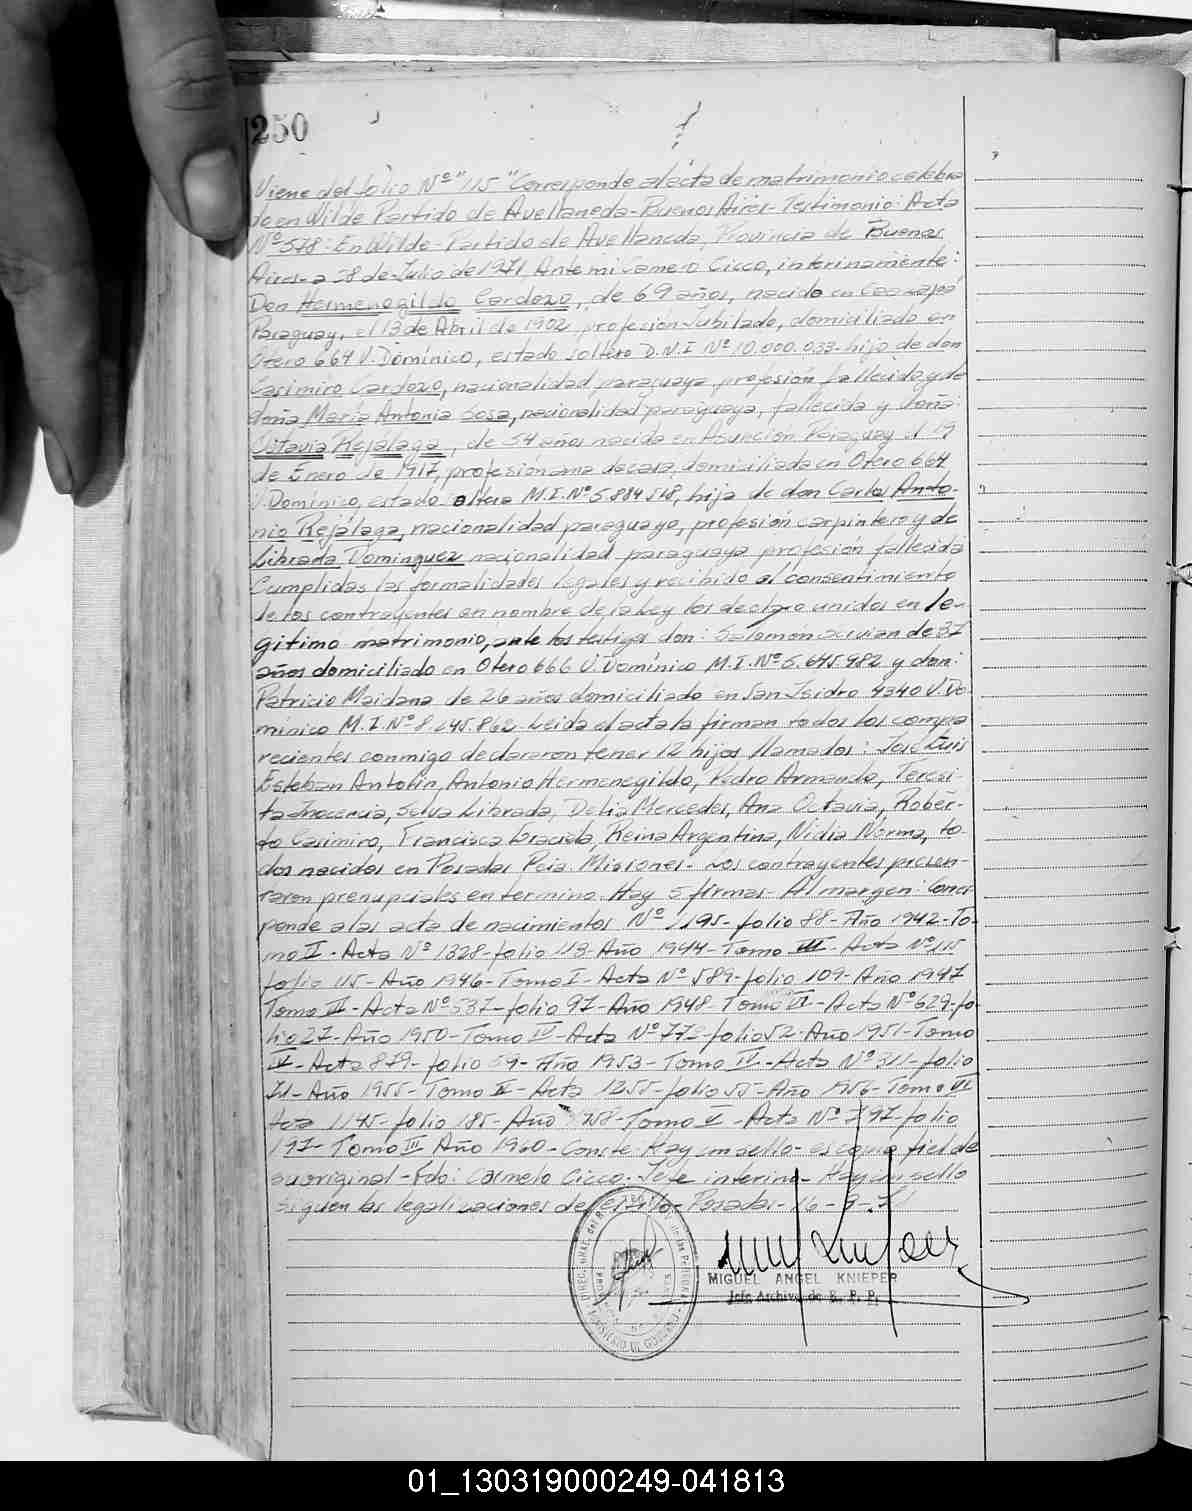 250
Viene del folio Nº "115" Corresponde al acta de matrimonio celebra
do en Wilde Partido de Avellaneda-Buenos Aires-Testimonio: Acta
Nº 578: En Wilde-Partido de Avellaneda, Provincia de Buenos
Aires-a 28 de Julio de 1971, Ante mi Camelo Cicco, interinamente:
Don Hermenogildo Cardozo, de 69 años, nacido en
Paraguay, el 13 de Abril de 1902, profesión Jubilado, domiciliado en
Otero 664 V. Domínico, estado soltero D.N.I Nº 10.000.033-hijo de don
Casimiro Cardozo, nacionalidad paraguaya profesión fallecido y de
doña María Antonia Sosa, nacionalidad paraguaya, fallecida y doña:
Octavia Rejalaga, de 54 años nacida en Asunción Paraguay el 19
de Enero de 1917, profesión ama de casa, domiciliada en Otero 664
V. Domínico, estado soltera M.I. Nº 5.884.518, hija de don Carlos Anto-
nio Rejálaga, nacionalidad paraguayo, profesión carpintero y de
Librada Dominguez nacionalidad paraguaya profesión fallecida
Cumplidas las formalidades legales y recibido el consentimiento
de los contrayentes en nombre de la Ley los declaro unidos en le-
gitimo matrimonio, ante los testigos don: Salomón de 37
años domiciliado en Otero 666 V. Domínico M.I. Nº 5.645.982 y don:
Patricio Maidana de 26 años domiciliado en San Isidro 4340 V. Do
mínico M.I. Nº 8.645.862-Leida el acta la firman todos los compa
recientes conmigo declararon tener 12 hijos llamados: José Luis
Esteban Antolin, Antonio Hermenegildo, Pedro Armando, Teresi-
ta Inocencia, Selva Librada, Delia Mercedes, Ana Octavia, Rober-
to Casimiro, Francisca Graciela, Reina Argentina, Nidia Norma, to-
dos nacidos en Posadas Pcia. Misiones-Los contrayentes presen-
taron prenupciales en termino. Hay 5 firmas-Al margen: Corres
ponde a las acta de nacimientos Nº 1195-folio 88-Año 1942-To-
mo I-Acta Nº 1328-folio 113-Año 1944-Tomo III-Acta Nº 115
folio 115-Año 1946-Tomo I-Acta Nº 589-folio 109-Año 1947
Tomo III-Acta Nº 537-folio 97-Año 1948-Tomo VI-Acta Nº 629-fo-
lio 27-Año 1950-Tomo IV-Acta Nº 772-folio 52-Año 1951-Tomo
V-Acta 879-folio 59-Año 1953-Tomo IV-Acta Nº 311-folio
71-Año 1955-Tomo II-Acta 1255-folio 55-Año 1956-Tomo VI
Acta 1145-folio 185-Año 1958-Tomo V-Acta Nº 797-folio
197-Tomo III Año 1960-Conste. Hay un sello-es copia fiel de
su original-Fdo: Carmelo Cicco. Jefe interino-Hay un sello
Siguen las legalizaciones de estilo-Posadas-16-9-71
MIGUEL ANGEL KNIEPER
Jefe Archivo de R. P. P.
01_130319000249-041813